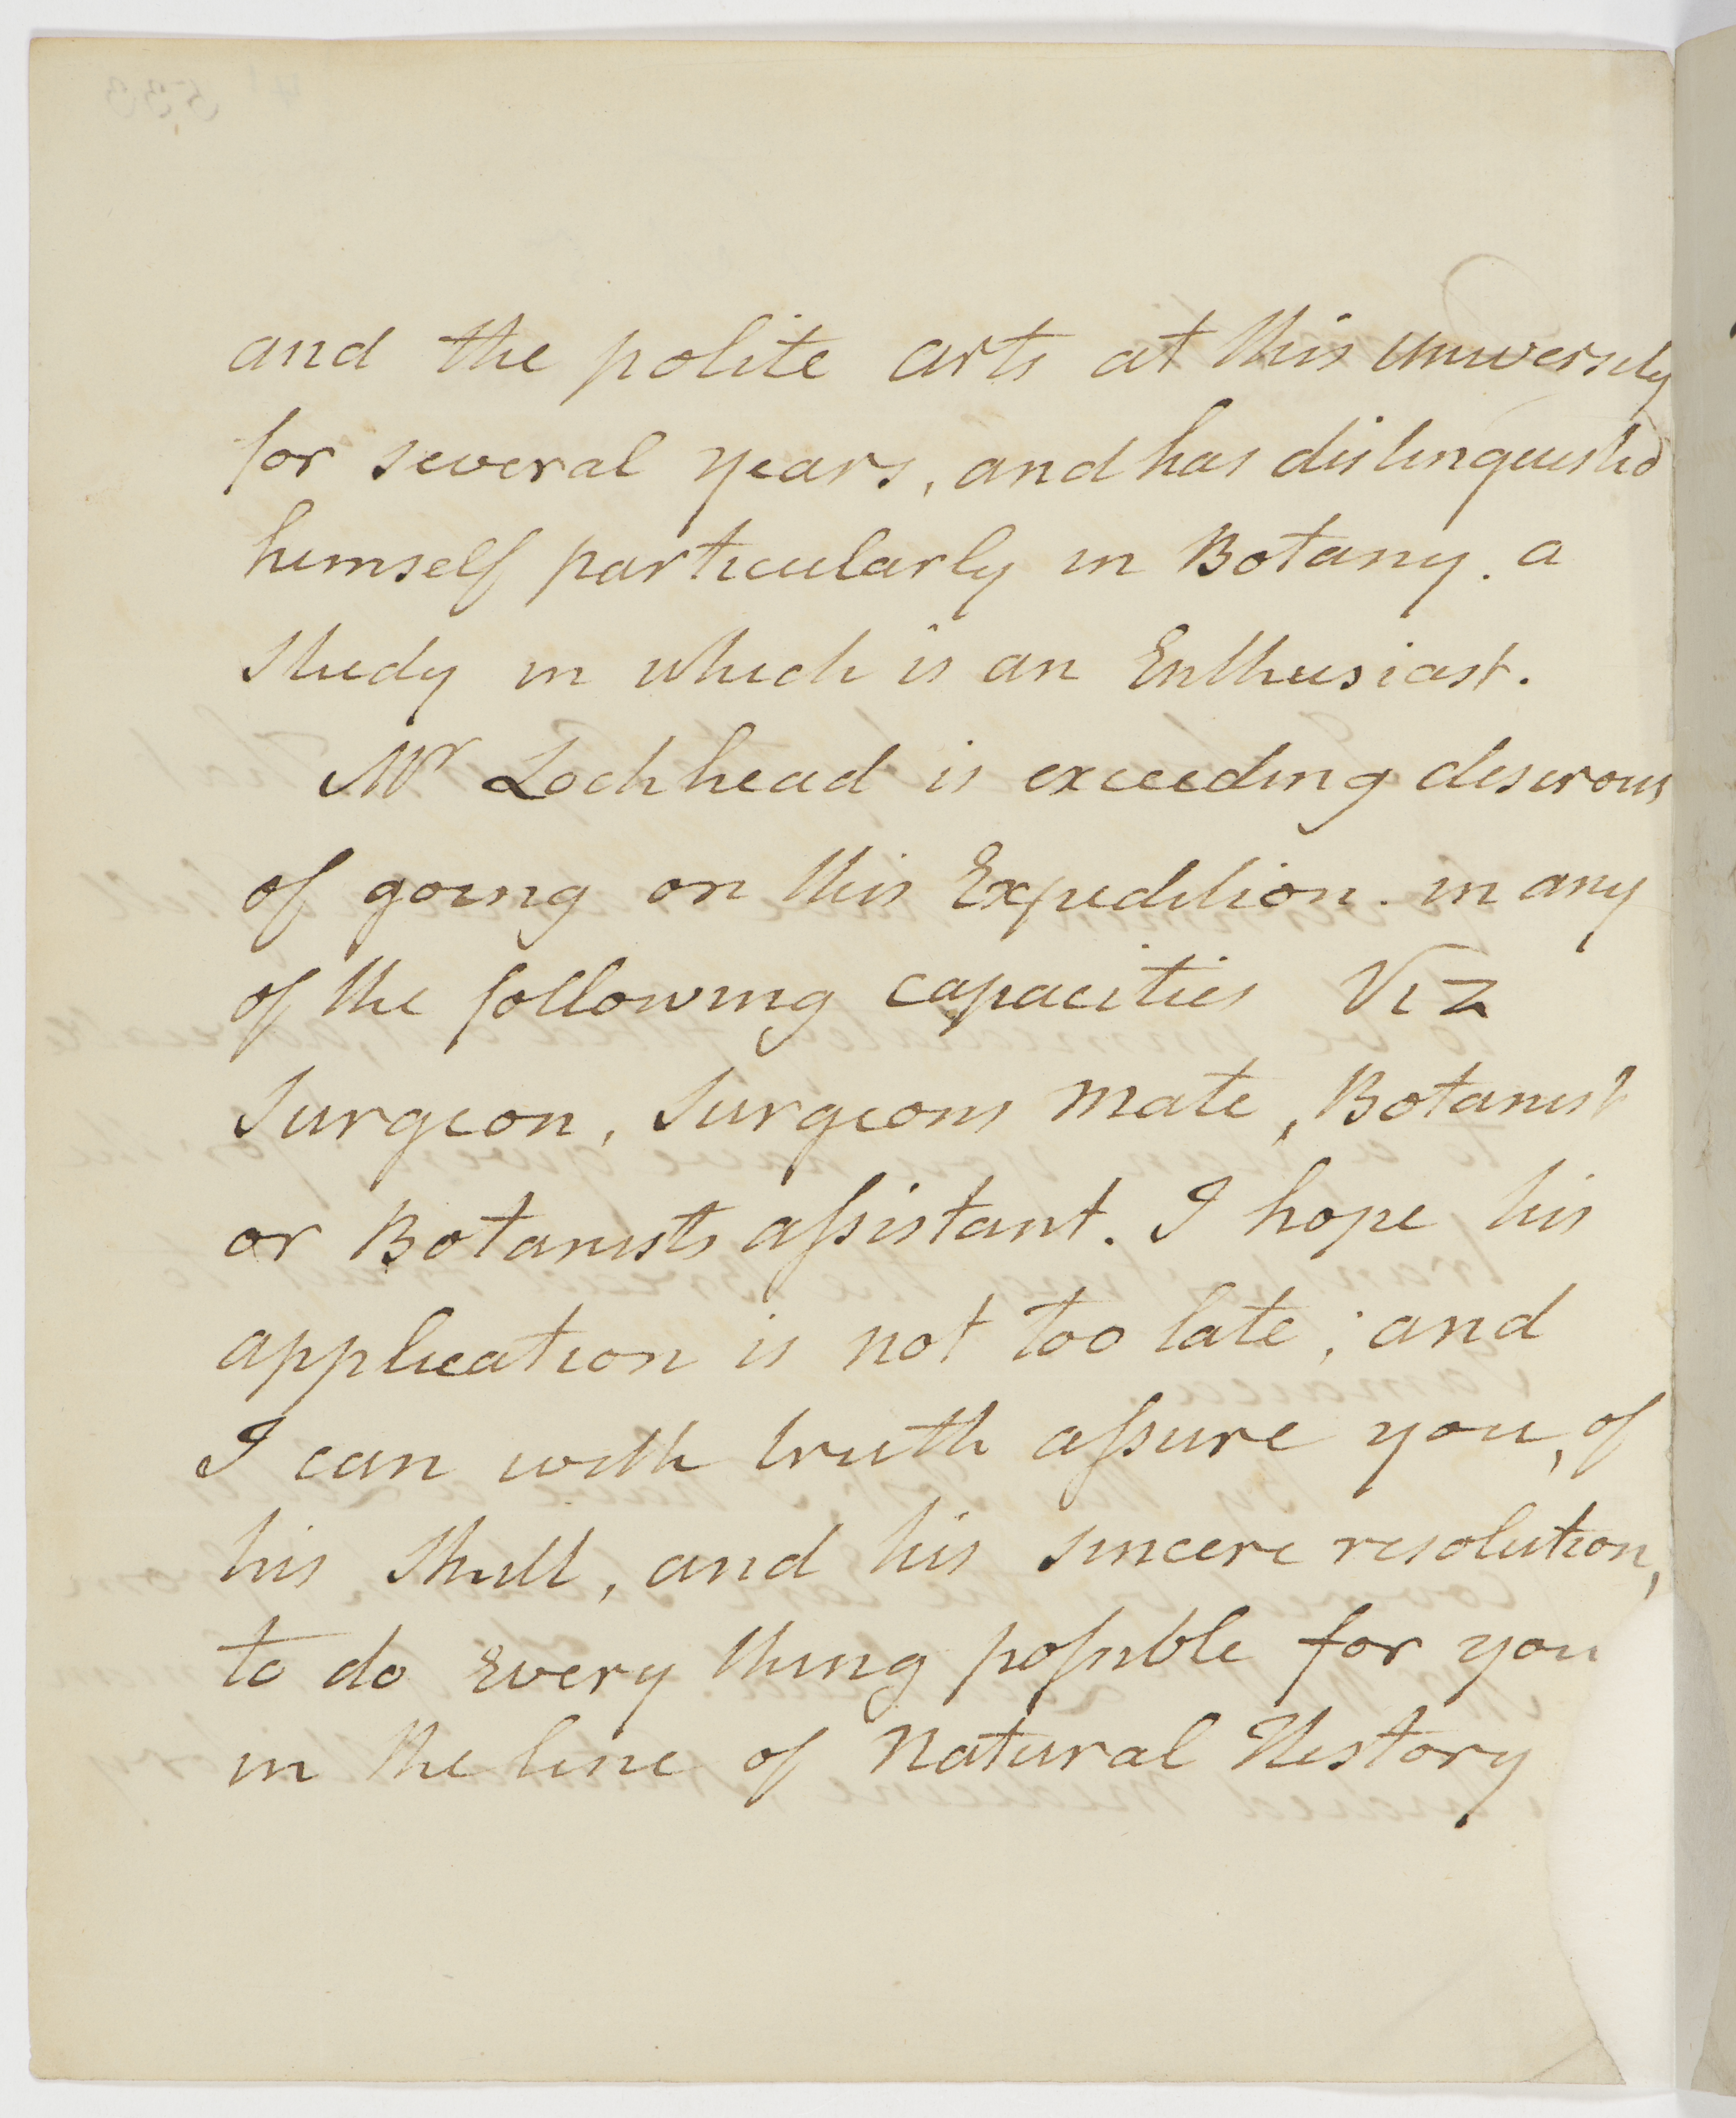 and the polite arts at this university
for several years, and has distinguishd
himself particularly in Botany. a
Study in which is an Enthusiast.
Mr Lochhead is exceeding desirous
of going on this Expedition. in any
of the following capacities Viz
Surgeon, Surgeons mate, Botanist
or Botanists aſsistant. I hope his
application is not too late; and
I can with truth aſsure you, of
his Skill, and his sincere resolution,
to do every thing poſsible for you
in the line of Natural History